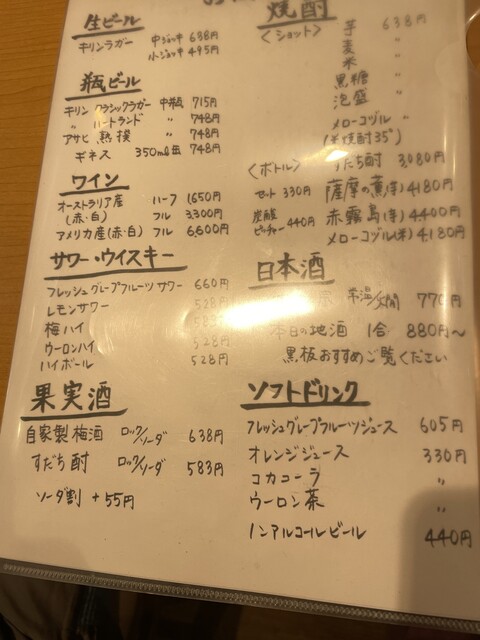 生ビール
キリンラガー 中ジョッキ 638円
小ジョッキ 495円
瓶ビール
キリン クラシックラガー 中瓶 715円
〃 ハートランド 〃 748円
アサヒ 熟撰 〃 748円
ギネス 350ml缶 748円
ワイン
オーストラリア産 ハーフ 1650円
(赤・白) フル 3,300円
アメリカ産(赤・白) フル 6,600円
サワー・ウイスキー
フレッシュグレープフルーツサワー 660円
レモンサワー 528円
梅ハイ 583円
ウーロンハイ 528円
ハイボール 528円
果実酒
自家製梅酒 ロック/ソーダ 638円
すだち酎 ロック/ソーダ 583円
ソーダ割 +55円
焼酎
<ショット> 芋 638円
麦 〃
米 〃
黒糖 〃
泡盛 〃
メローコヅル 〃
(米焼酎35°)
<ボトル> すだち酎 3,080円
セット 330円 薩摩の薫(芋) 4180円
炭酸ピッチャー 440円 赤霧島(芋) 4400円
メローコヅル(米) 4,180円
日本酒
常温/燗 770円
本日の地酒 1合 880円~
黒板おすすめご覧ください
ソフトドリンク
フレッシュグレープフルーツジュース 605円
オレンジジュース 330円
コカコーラ 〃
ウーロン茶 〃
ノンアルコールビール 440円